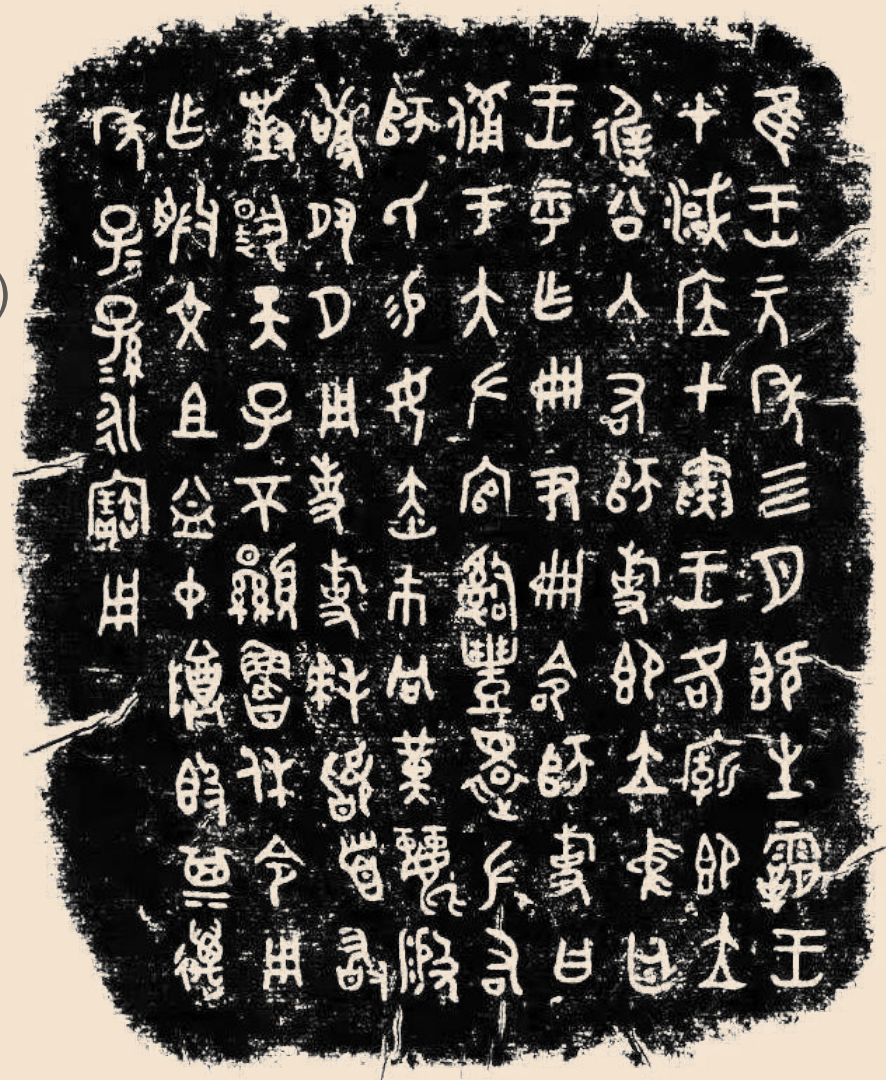 隹王元年四月既生霸王
才淢应甲寅王各廟即立
遟公入右師旋即立中廷
王乎乍册尹册令師旋曰
備于大左官嗣豐還左右
師氏易女赤巿冋黃麗般
敬夙夕用事旋拜𩒨首敢
對揚天子不顯魯休令用
乍朕文且益中尊𣪘其邁
年子子孫孫永寶用